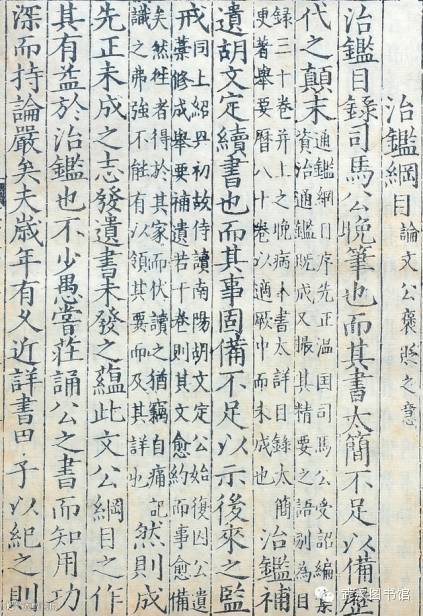 治鑑綱目 論文公褒貶之意
治鑑目錄司馬公晚筆也而其書太簡不足以備
代之顛末
通鑑綱目序先正溫国司馬公受詔編集
資治通鑑既成又撮其精要之語別為目
錄三十卷并上之晚病本書太詳目錄太簡
更著舉要曆八十卷以適厥中而未成也
治鑑補
遺胡文定續書也而其事固備不足以示後來之監
戒
同上紹興初故侍讀南陽胡文定公始復因公遺
藁修成舉要補遺若干卷則其文愈約而事愈備
矣然徃者得於其家而伏讀之猶竊自病記
識之弗強不能有以領其要而及其詳也
然則成
先正未成之志發遺書未發之蘊此文公綱目之作
其有益於治鑑也不少愚嘗莊誦公之書而知用功
深而持論嚴矣夫歲年有久近詳書甲子以紀之則
武汉图书馆